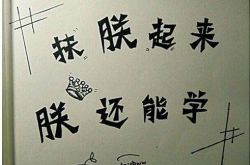 扶朕起来
朕还能学